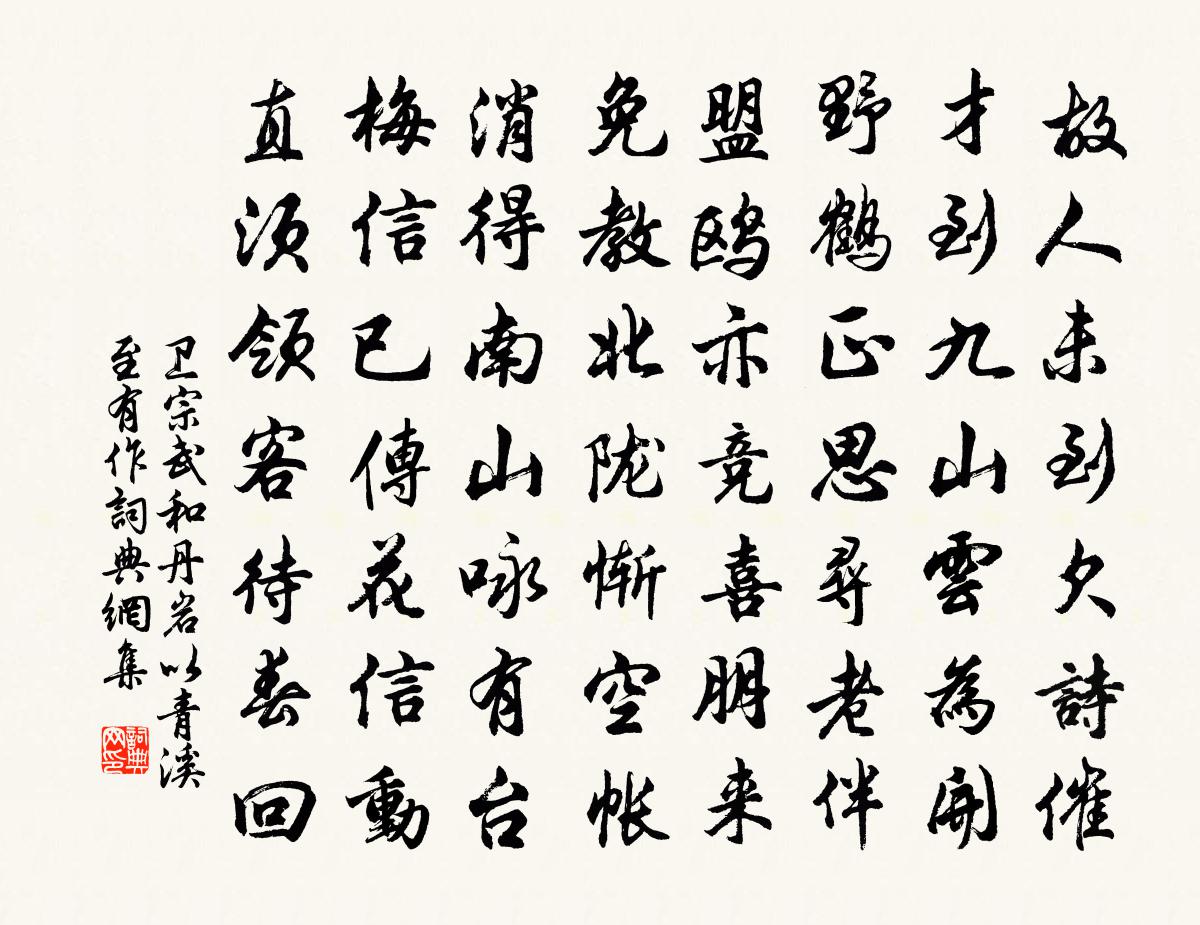 故人未到欠詩催
才到九山雲為開
野鶴正思尋老伴
盟鸥亦竞喜朋来
免教北陇惭空帐
消得南山咏有台
梅信已傳花信動
直须领客待春回
卫宗武和丹岩以青溪
至有作詞典網集
詞典网印